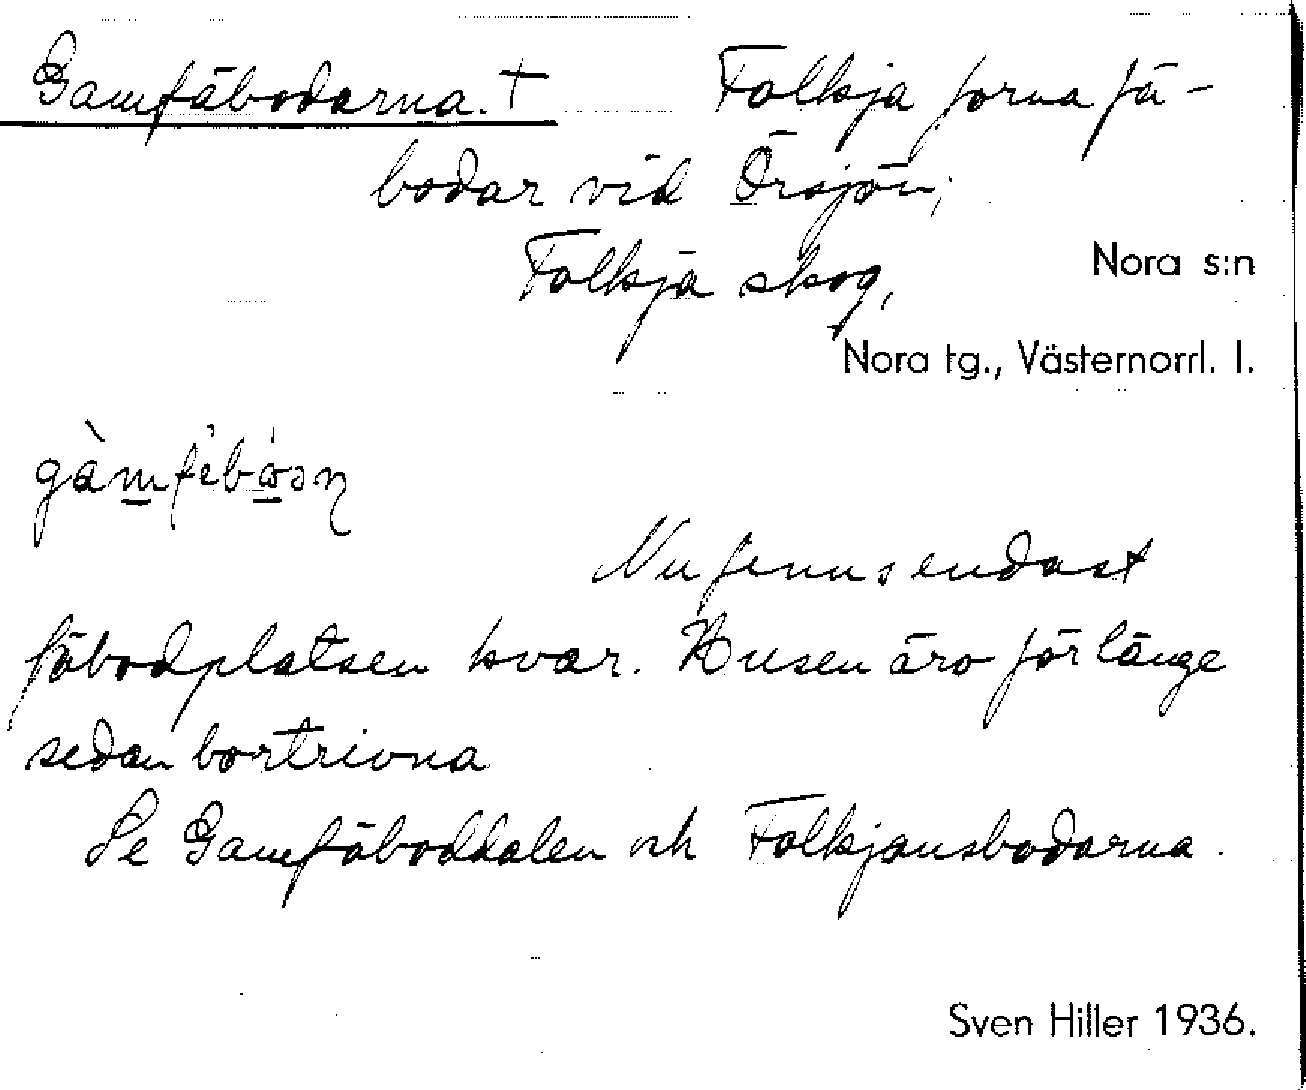 Gamfäbodarna. † Folkja forna fä-
bodar vid Örsjön;
Folkja skog,
Nora s:n
Nora tg., Västernorrl. l.
Nu finns endast
fäbodplatsen kvar. Husen äro för länge
sedan bortrivna
Se Gamfäboddalen och Folkjansbodarna.
Sven Hiller 1936.